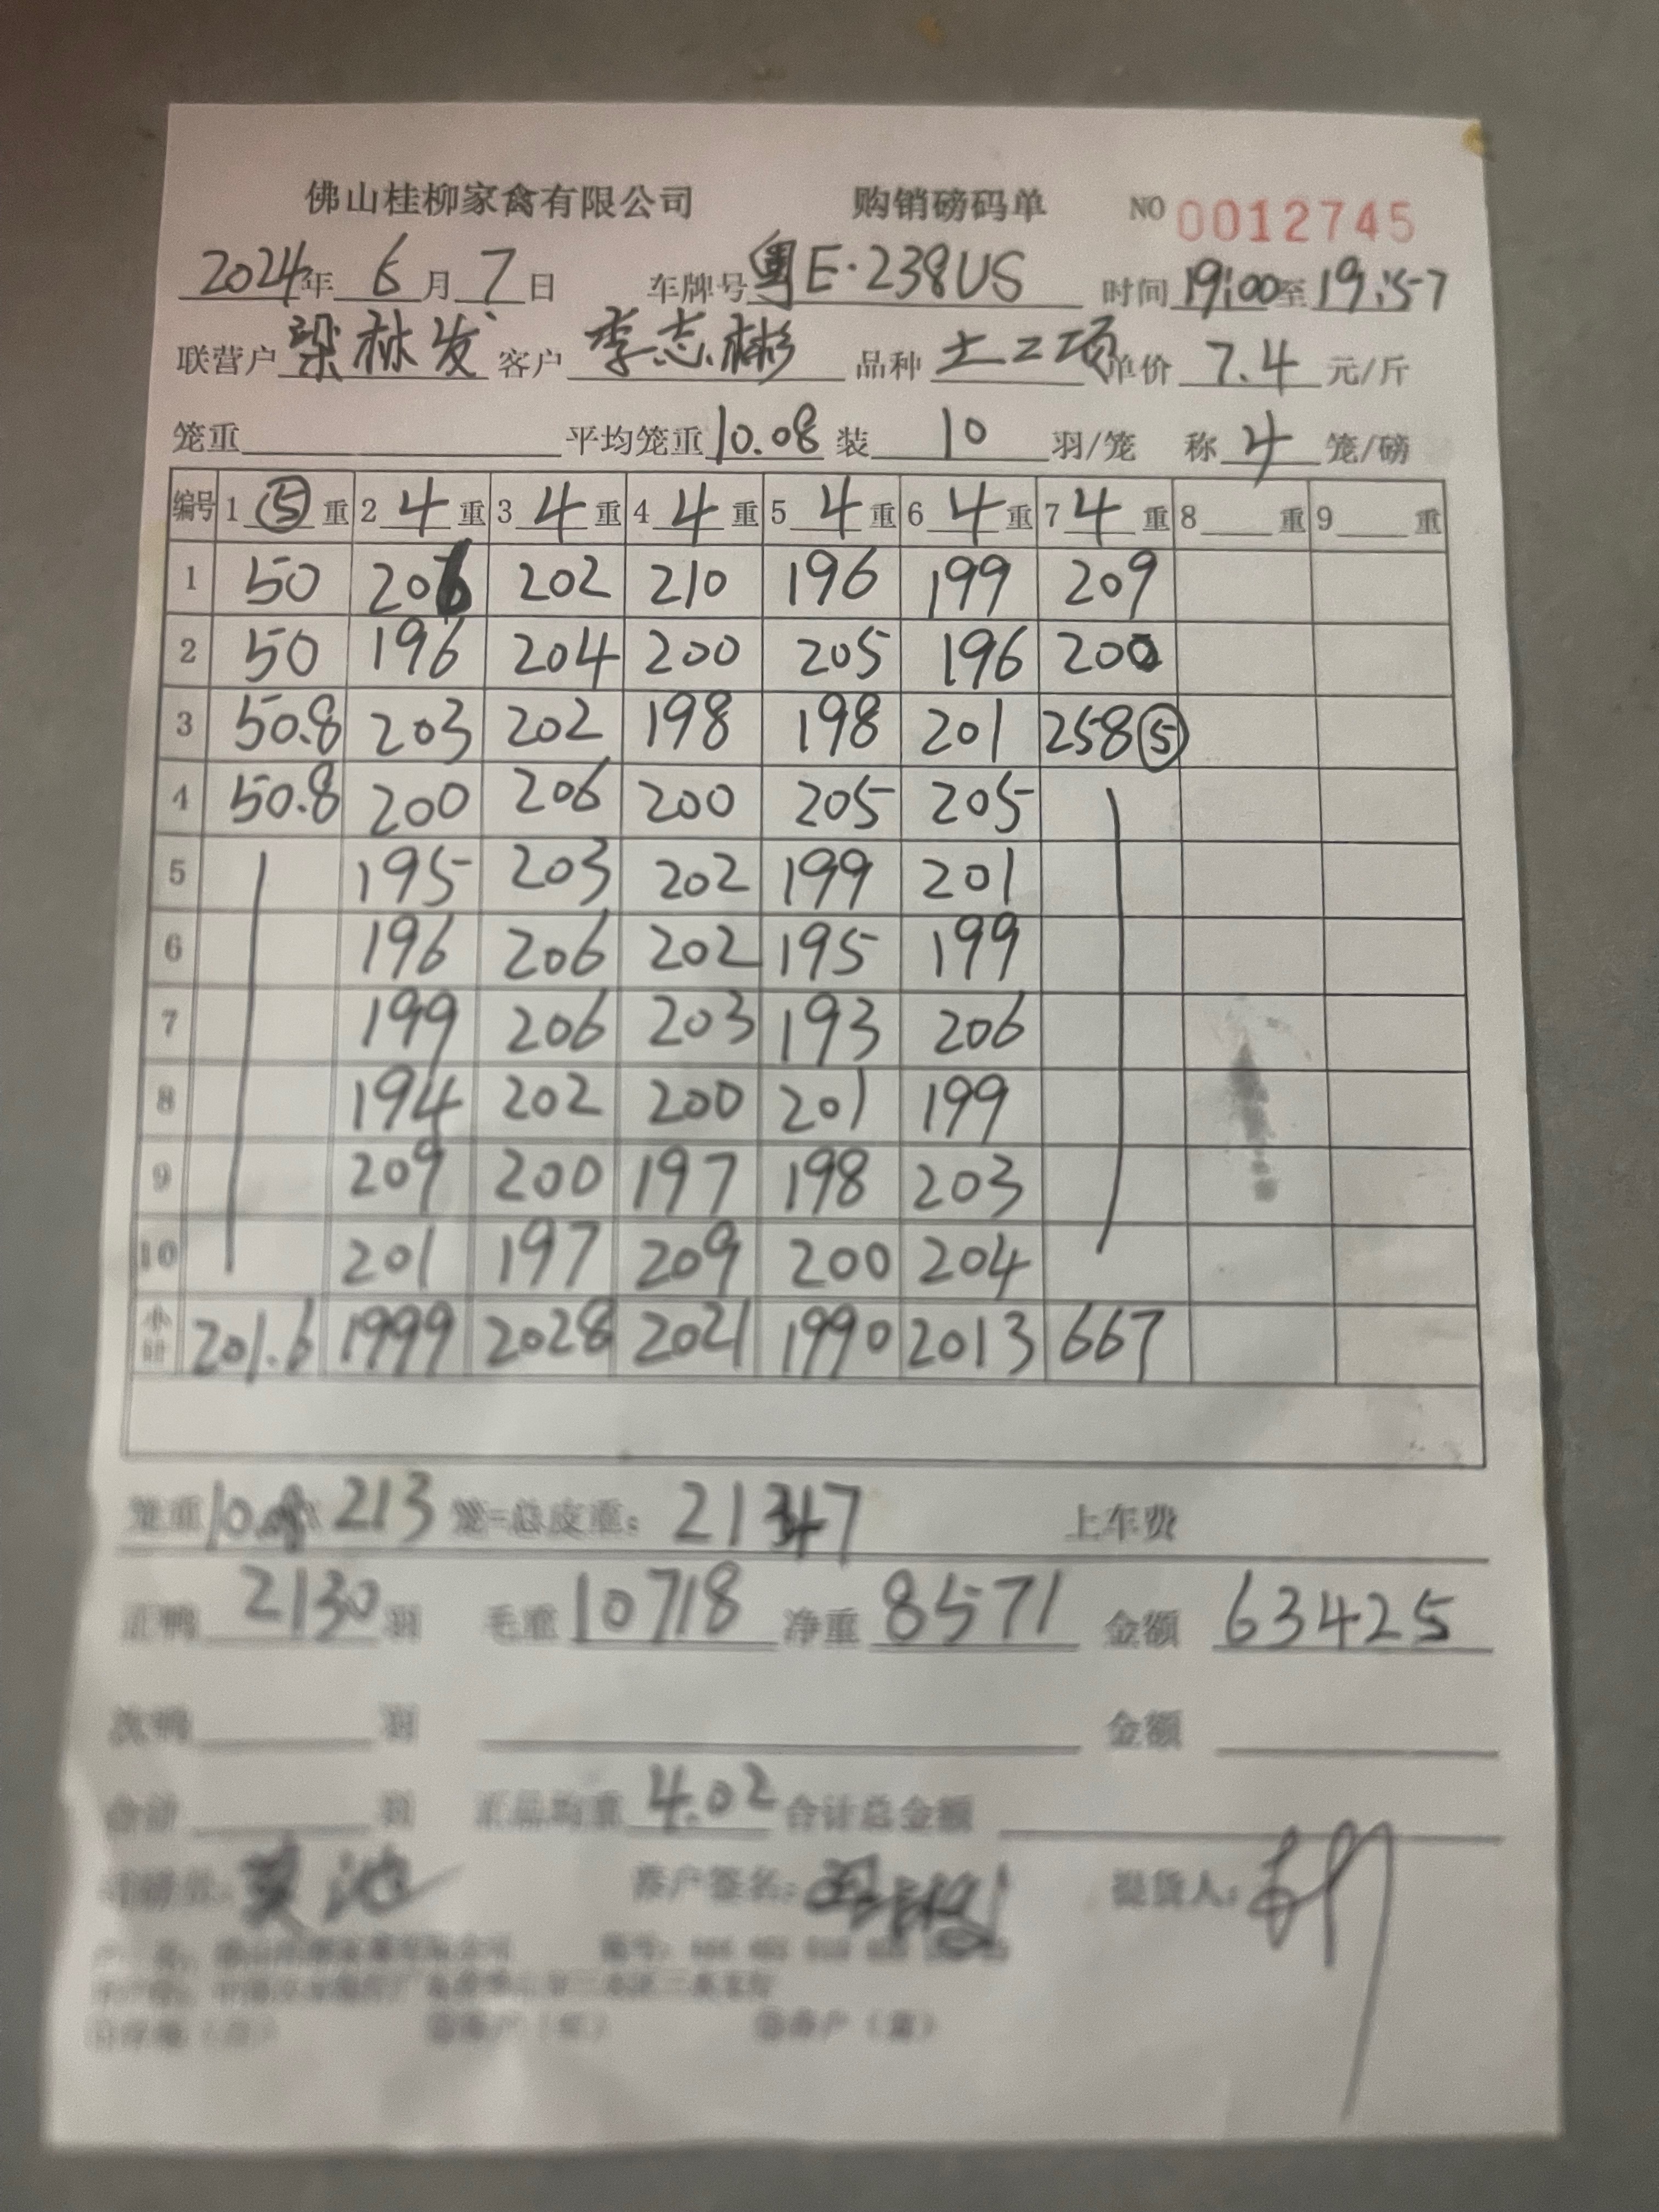 佛山桂柳家禽有限公司 购销磅码单 NO 0012745
2024年 6月 7日 车牌号 粤E·238US 时间 19:00至 19:57
联营户 梁林发 客户 李志彬 品种 土二项 单价 7.4 元/斤
笼重 平均笼重 10.08 装 10 羽/笼 称 4 笼/磅
编号 1 ⑤ 重 2 4 重 3 4 重 4 4 重 5 4 重 6 4 重 7 4 重 8 重 9 重
1 50 206 202 210 196 199 209
2 50 196 204 200 205 196 200
3 50.8 203 202 198 198 201 258⑤
4 50.8 200 206 200 205 205
5 195 203 202 199 201
6 196 206 202 195 199
7 199 206 203 193 206
8 194 202 200 201 199
9 209 200 197 198 203
10 201 197 209 200 204
小计 201.6 1999 2028 2021 1990 2013 667
笼重 10.08 213 笼=总皮重: 2147 上车费
正鸭 2130 羽 毛重 10718 净重 8571 金额 63425
次鸭 羽 金额
合计 羽 正品均重 4.02 合计总金额
客户签名: 提货人: